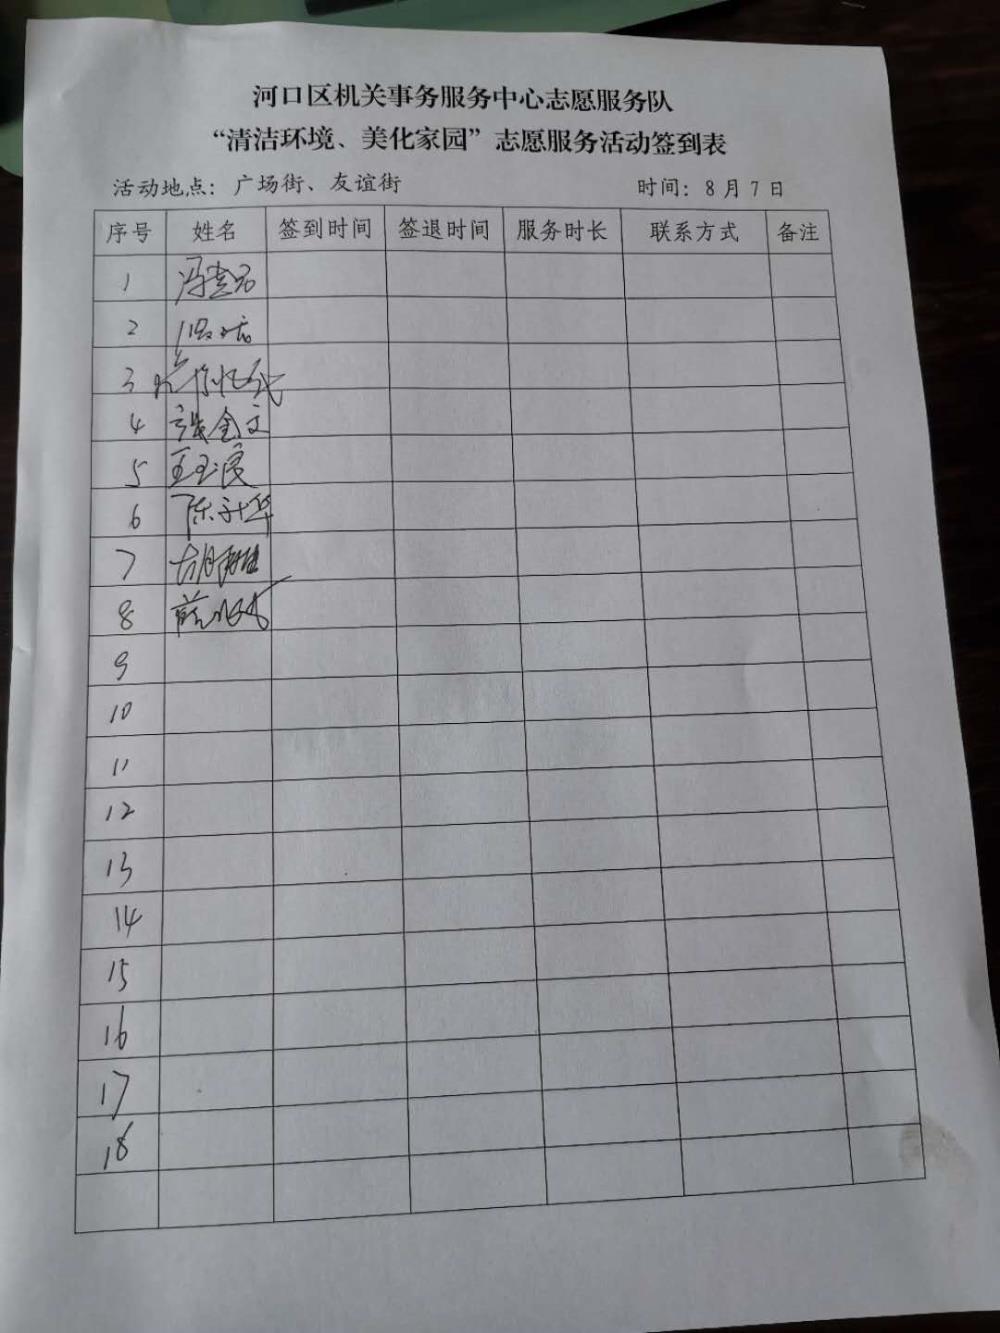 河口区机关事务服务中心志愿服务队
“清洁环境、美化家园”志愿服务活动签到表
活动地点：广场街、友谊街 时间：8月7日
序号 姓名 签到时间 签退时间 服务时长 联系方式 备注
1
2
3
4 金文
5 王玉
6 陈
7 胡
8
9
10
11
12
13
14
15
16
17
18